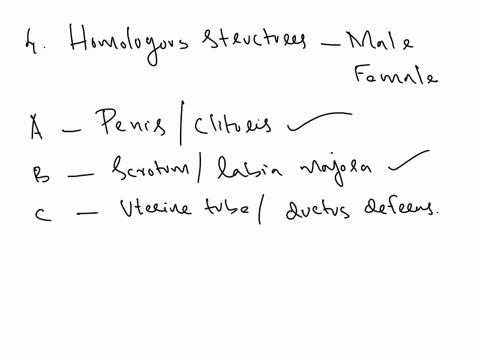 4. Homologous structures - Male
Female
A - Penis / Clitoris ✓
B - Scrotum / labia majora ✓
C - Uterine tube / ductus defeens.